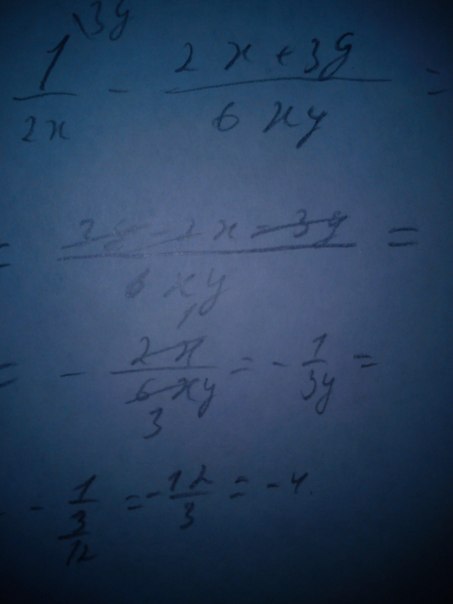 1\3y / 2x - (2x + 3y) / 6xy =
= (3y - 2x - 3y) / 6xy =
= - 2x / 6xy = - 1 / 3y =
1
3
- 1 / (3 / 12) = - 12 / 3 = -4.